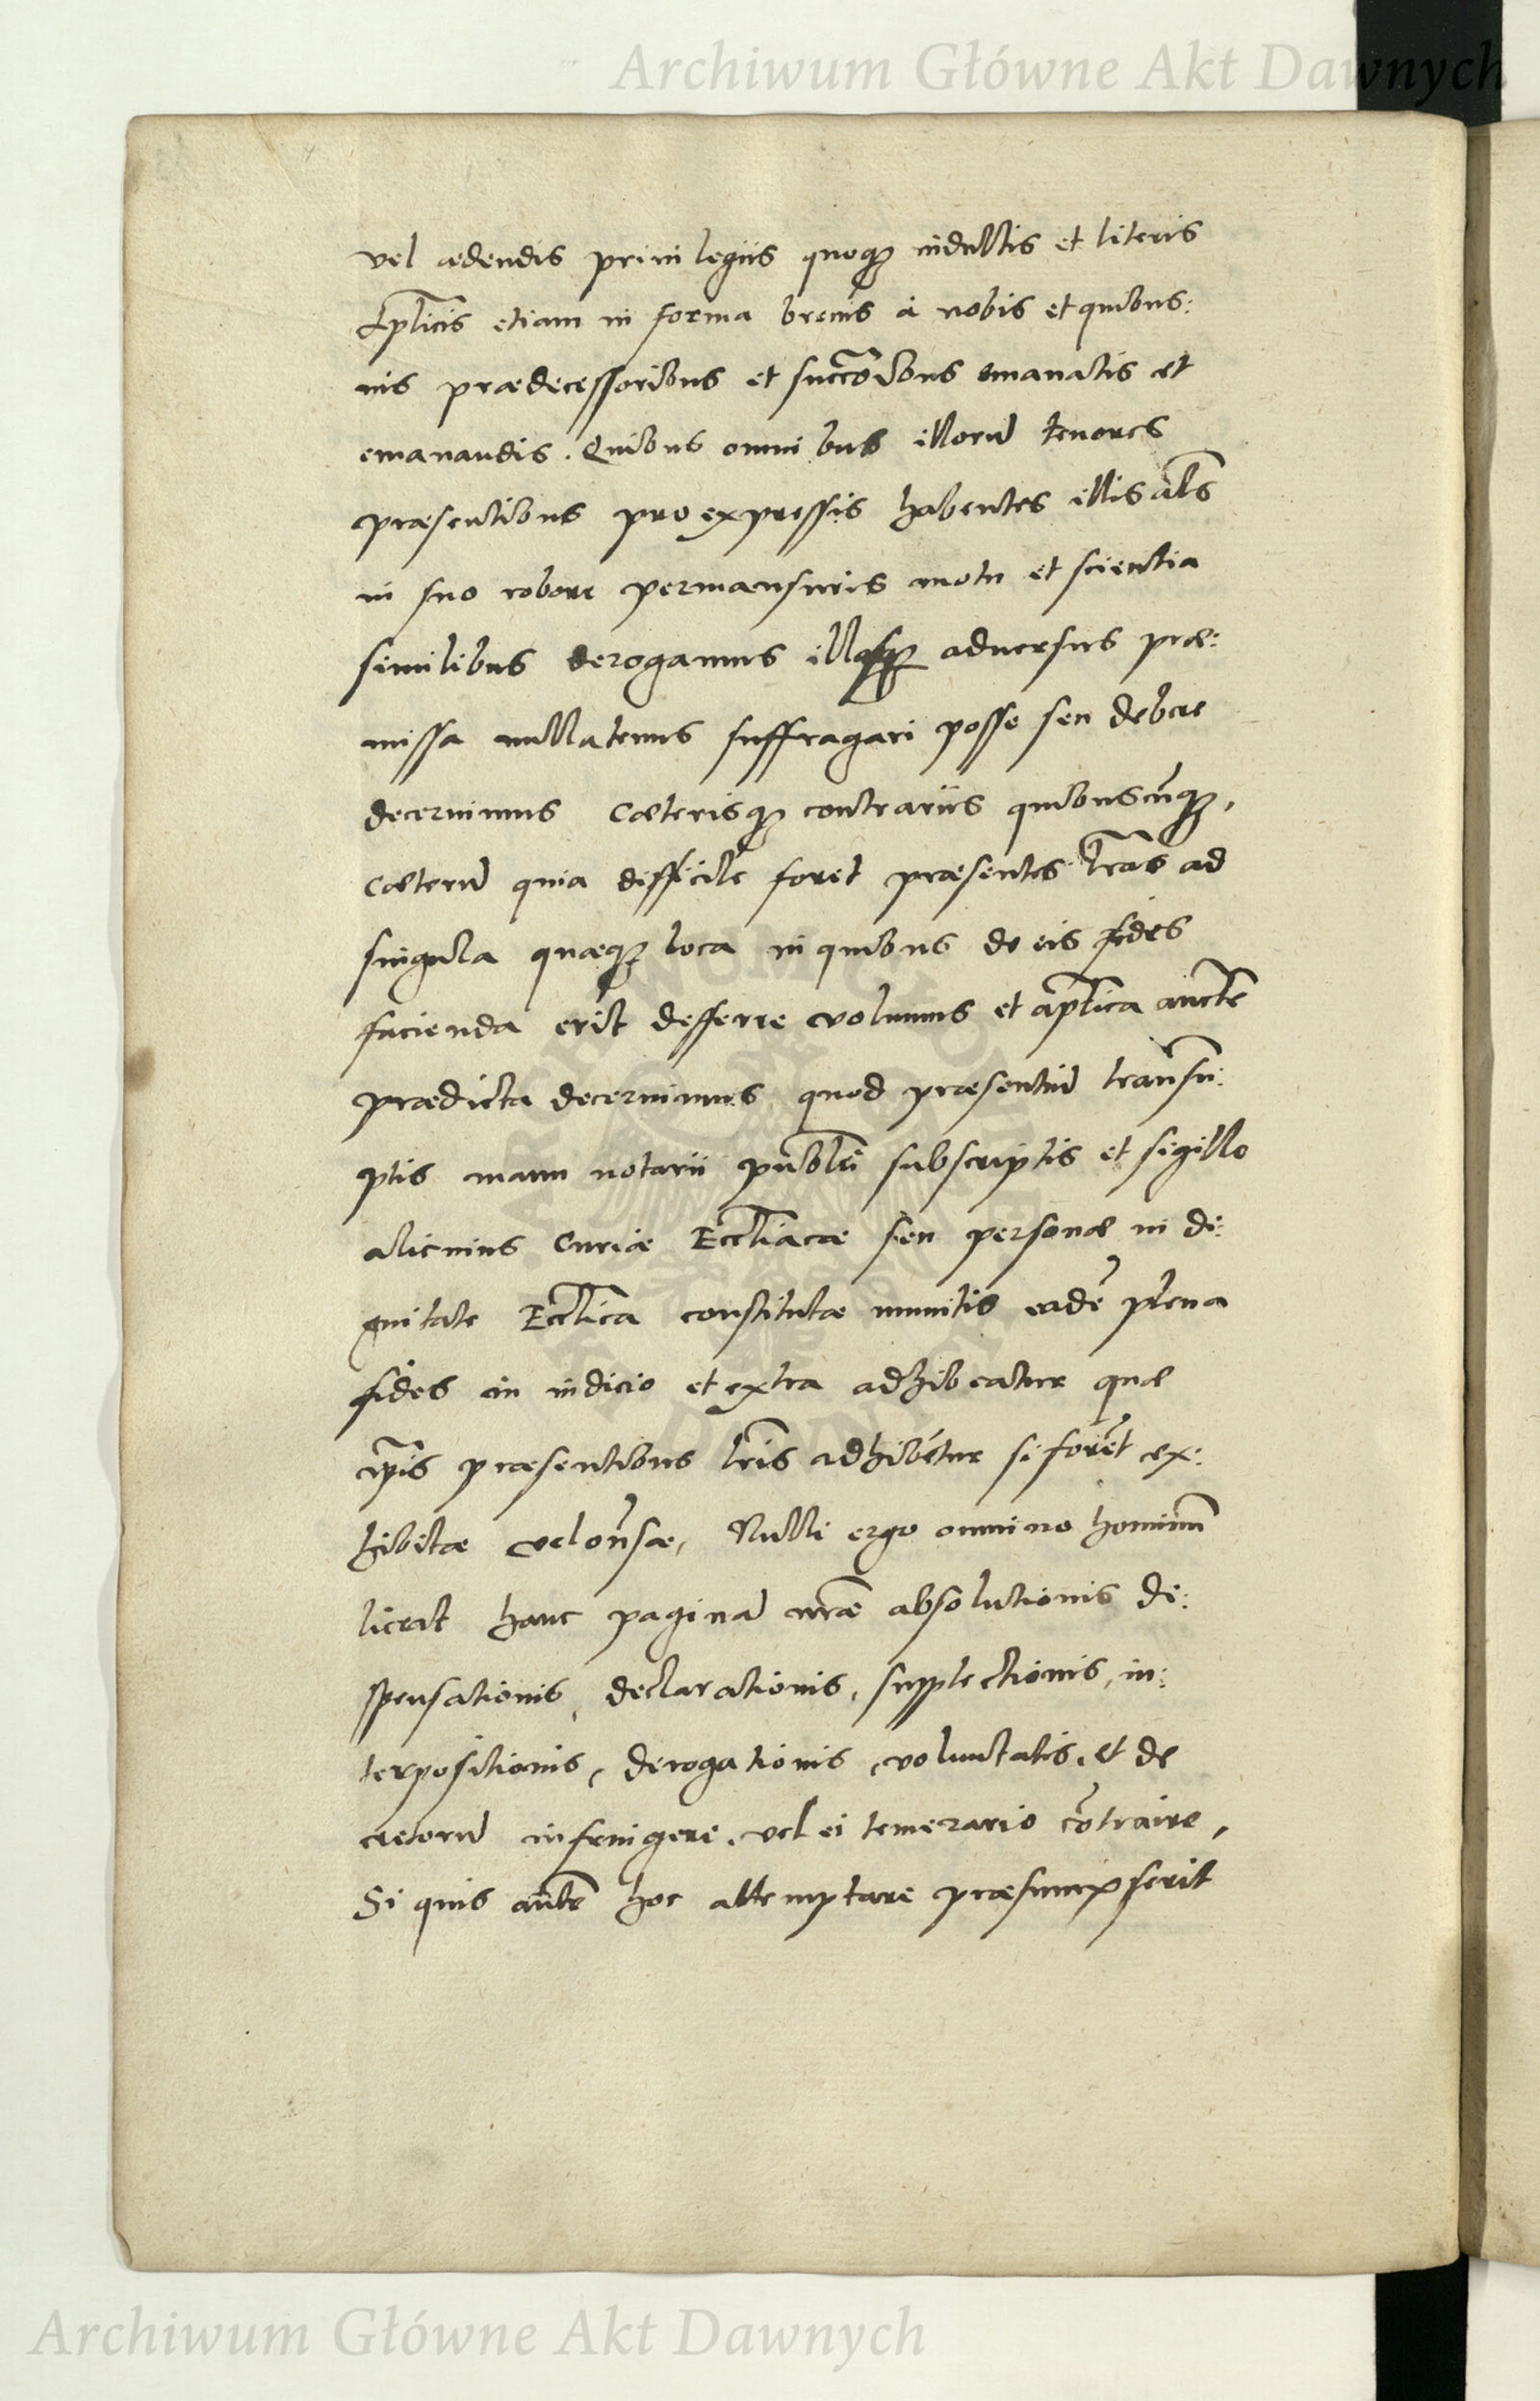 Archiwum Główne Akt Dawnych
vel ædendis privilegiis quoq; indultis et literis
Aplicis etiam in forma brevis à nobis et quibus:
vis prædecessoribus et succoribus emanatis et
emanandis. Quibus omnibus illorũ tenores
præsentibus pro expressis habentes illis als
in suo robore permansuris motu et scientia
similibus derogamus illaq; adversus præ:
missa nullatenus suffragari posse seu debere
decernimus cæterisq; contrariis quibuscũq;,
Cæterũ quia difficile foret præsentes lras ad
singula quæq; loca in quibus de eis fides
facienda erit defferre volumus et aplica aucte
prædicta decernimus quod præsentiũ transũ:
ptis manu notarii publci subscriptis et sigillo
alicuius Curiæ Eccliacæ seu personæ in di:
gnitate Ecclica constitutæ munitis eadẽ plena
fides in iudicio et extra adhibeatur quæ
ipis præsentibus lris adhibẽtur si forẽt ex:
hibitæ vel oñsæ, Nulli ergo omnino hominũ
liceat hanc paginã nræ absolutionis di:
spensationis, declarationis, supplectionis, in:
terpositionis, derogationis, voluntatis, et de
cretorũ infringere, vel ei temerario cõtraire,
Si quis aute hoc attemptare præsumpserit
Archiwum Główne Akt Dawnych